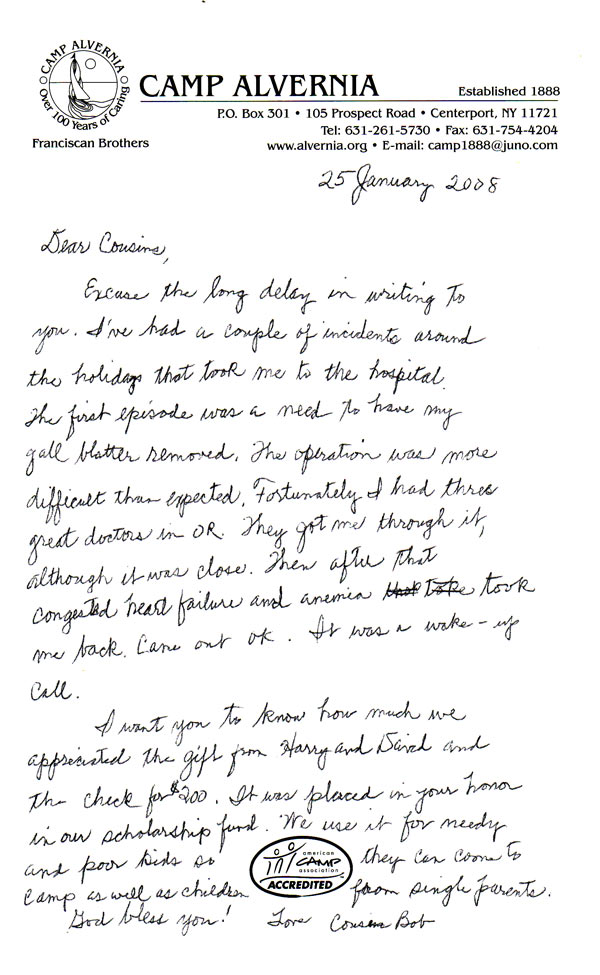 CAMP ALVERNIA
Over 100 Years of Caring
Franciscan Brothers
CAMP ALVERNIA
Established 1888
P.O. Box 301 • 105 Prospect Road • Centerport, NY 11721
Tel: 631-261-5730 • Fax: 631-754-4204
www.alvernia.org • E-mail: camp1888@juno.com
25 January 2008
Dear Cousins,
Excuse the long delay in writing to
you. I've had a couple of incidents around
the holidays that took me to the hospital.
The first episode was a need to have my
gall blatter removed. The operation was more
difficult than expected. Fortunately I had three
great doctors in OR. They got me through it,
although it was close. Then after that
congested heart failure and anemia took
me back. Came out ok. It was a wake-up
call.
I want you to know how much we
appreciated the gift from Harry and David and
the check for $200. It was placed in your honor
in our scholarship fund. We use it for needy
and poor kids so they can come to
camp as well as children from single parents.
God bless you! Love Cousin Bob
american
CAMP
association
ACCREDITED